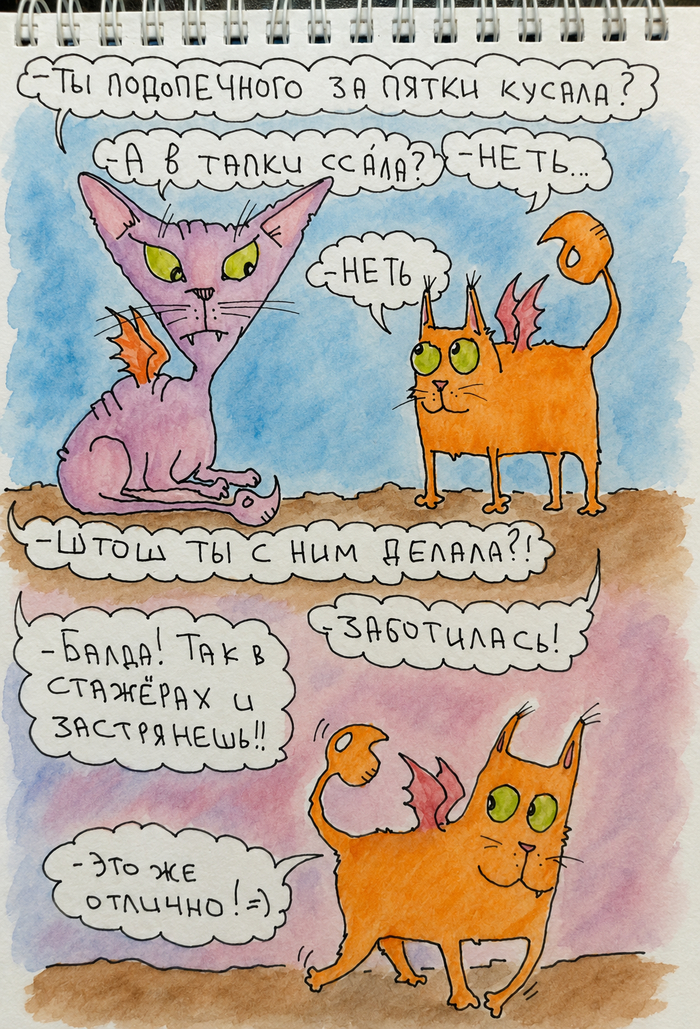 -ТЫ ПОДОПЕЧНОГО ЗА ПЯТКИ КУСАЛА?
-НЕТЬ
-А В ТАПКИ ССÁЛА?
-НЕТЬ...
-ШТОШ ТЫ С НИМ ДЕЛАЛА?!
-ЗАБОТИЛАСЬ!
-БАЛДА! ТАК В
СТАЖЁРАХ И
ЗАСТРЯНЕШЬ!!
-ЭТО ЖЕ
ОТЛИЧНО! =)